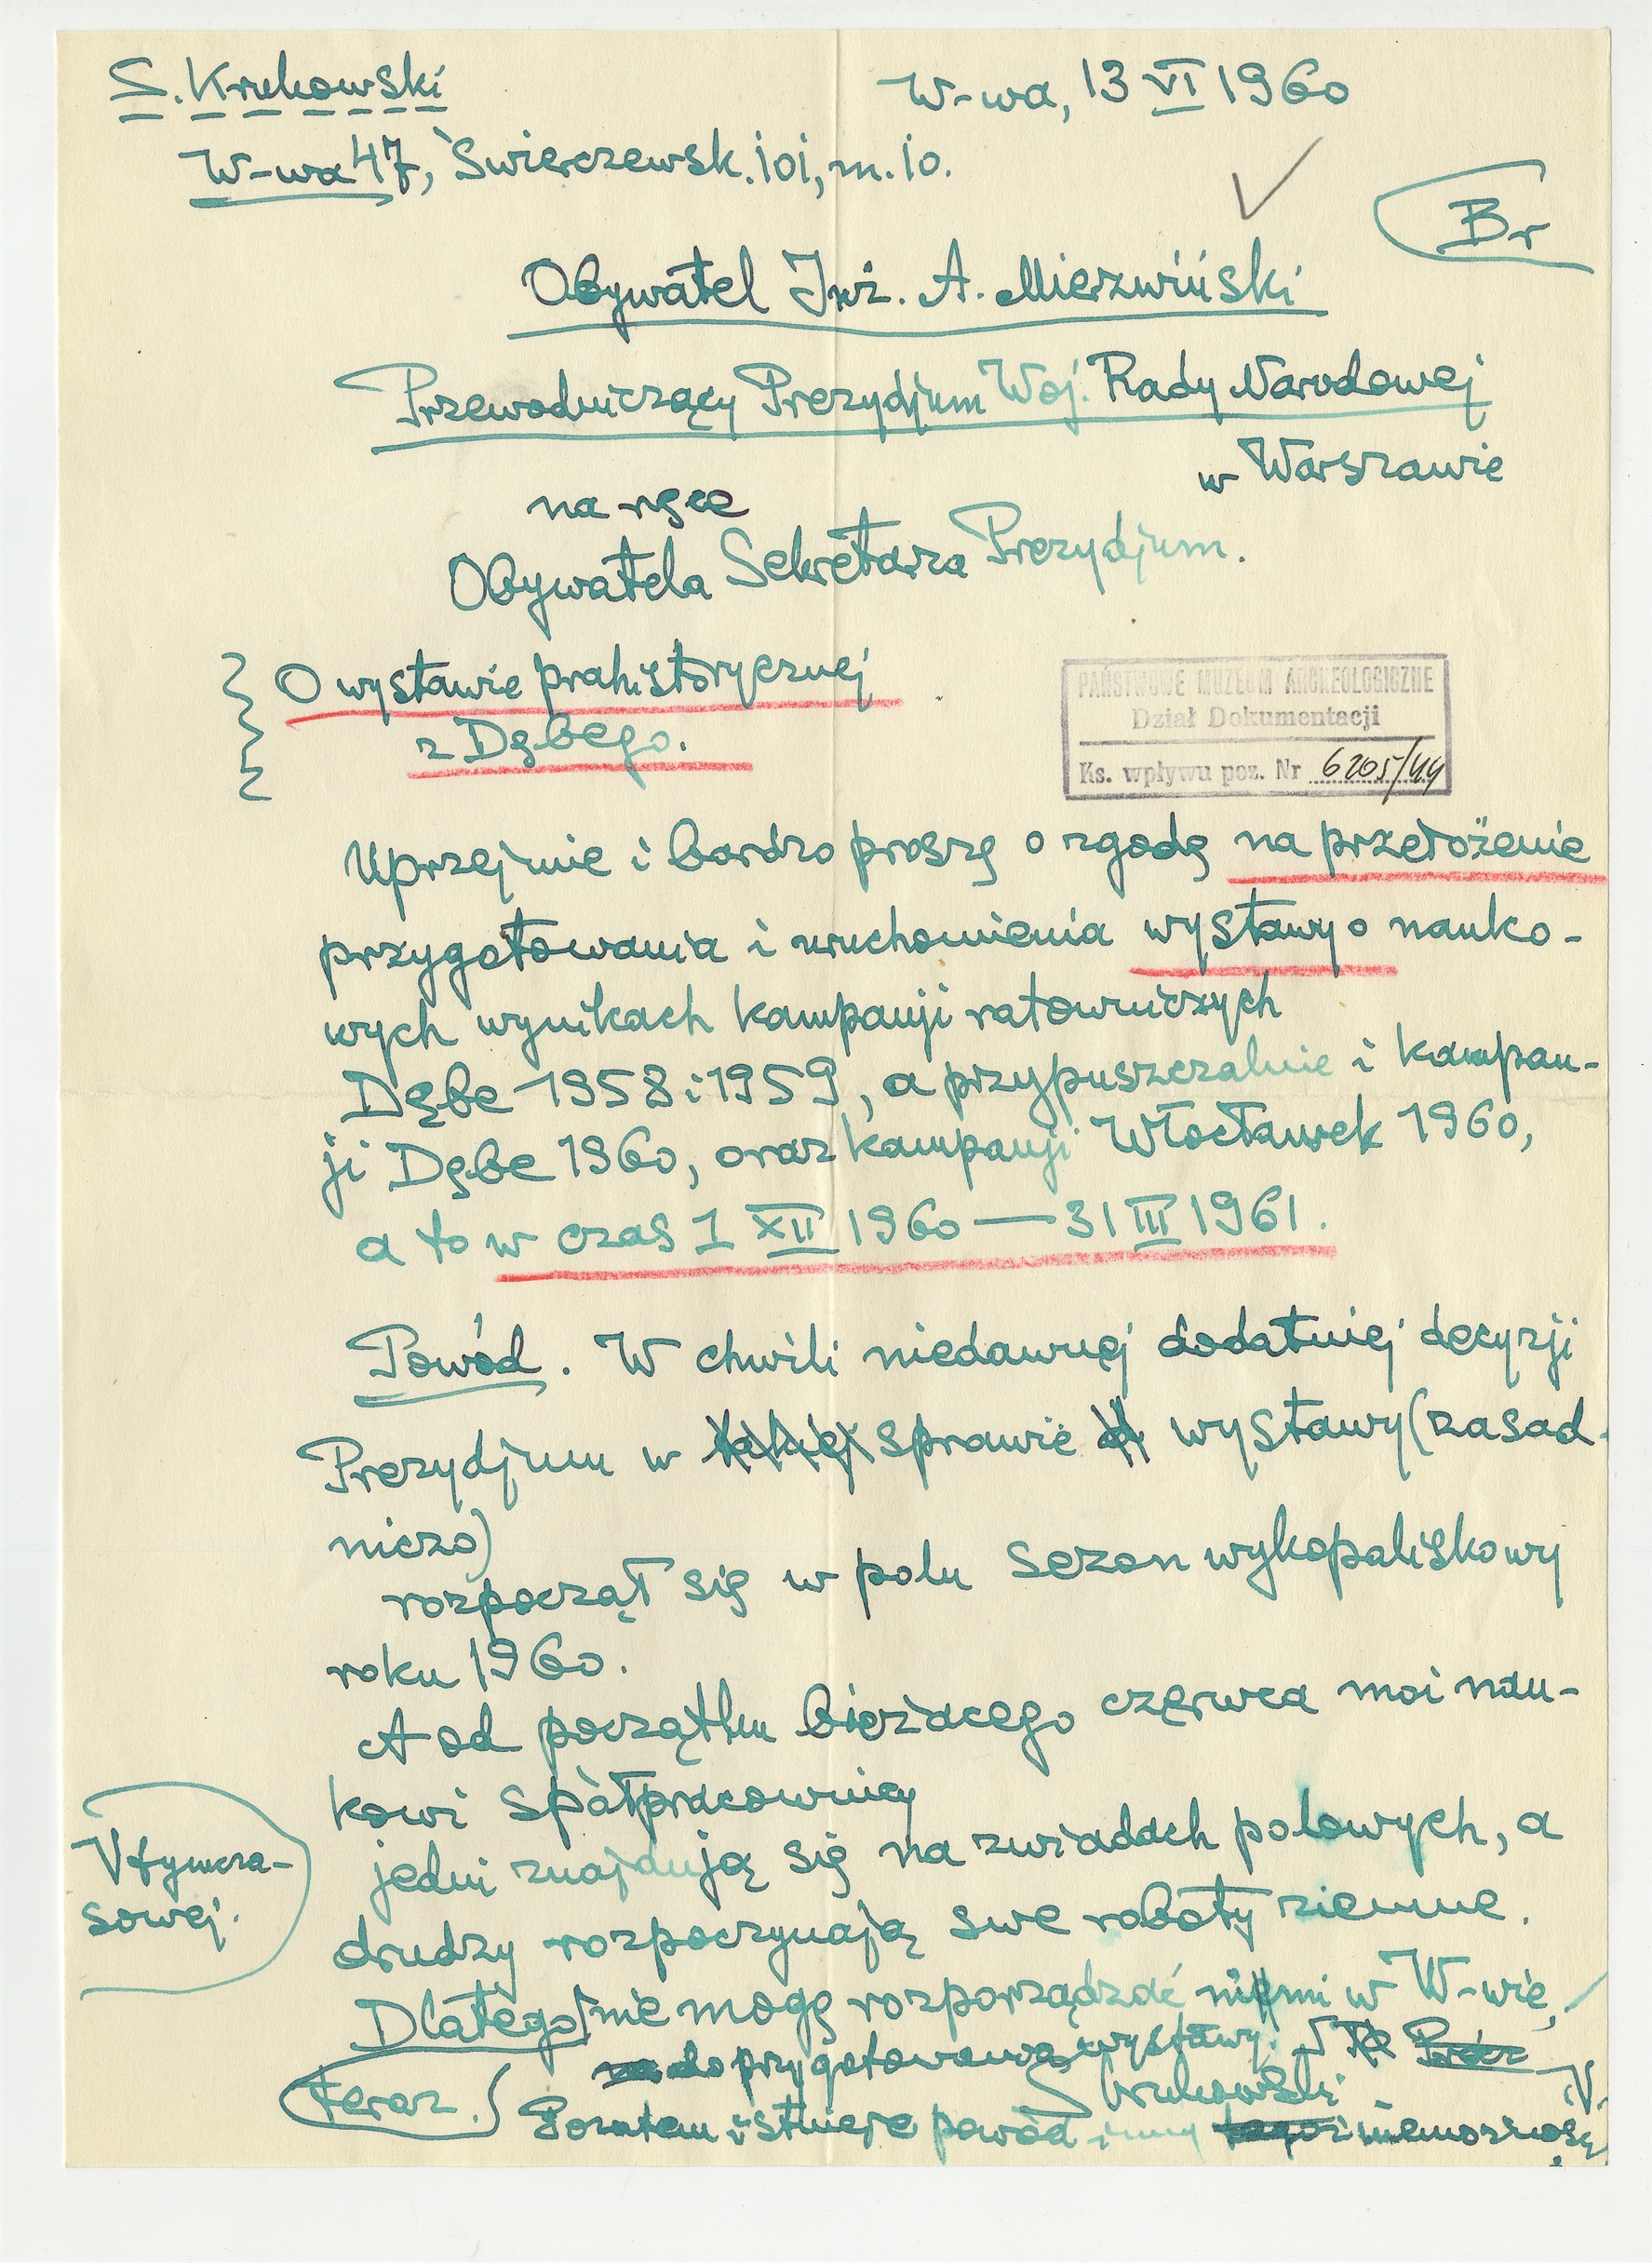 S. Krukowski
W-wa, 13 VI 1960
W-wa 47, Świerczewsk. 101, m. 10.
Br
Obywatel Inż. A. Mierzwiński
Przewodniczący Prezydjum Woj. Rady Narodowej
w Warszawie
na ręce
Obywatela Sekretarza Prezydjum.
O wystawie prahistorycznej
z Dębego.
PAŃSTWOWE MUZEUM ARCHEOLOGICZNE
Dział Dokumentacji
Ks. wpływu poz. Nr 6205/44
Uprzejmie i bardzo proszę o zgodę na przełożenie
przygotowania i uruchomienia wystawy o nauko-
wych wynikach kampanji ratowniczych
Dębe 1958 i 1959, a przypuszczalnie i kampan-
ji Dębe 1960, oraz kampanji Włocławek 1960,
a to w czas 1 XII 1960 — 31 III 1961.
Powód. W chwili niedawnej dodatniej decyzji
Prezydjum w takiej sprawie wystawy (zasad-
niczo)
rozpoczął się w polu sezon wykopaliskowy
roku 1960.
A od początku bieżącego czerwca moi nau-
kowi spółpracownicy
jedni znajdują się na zwiadach polowych, a
drudzy rozpoczynają swe roboty ziemne.
V tymcza-
sowej.
Dlatego nie mogę rozporządzać nimi w W-wie,
do przygotowania wystawy.
Krukowski
teraz.
Pozatem istnieje powód inny niemożność